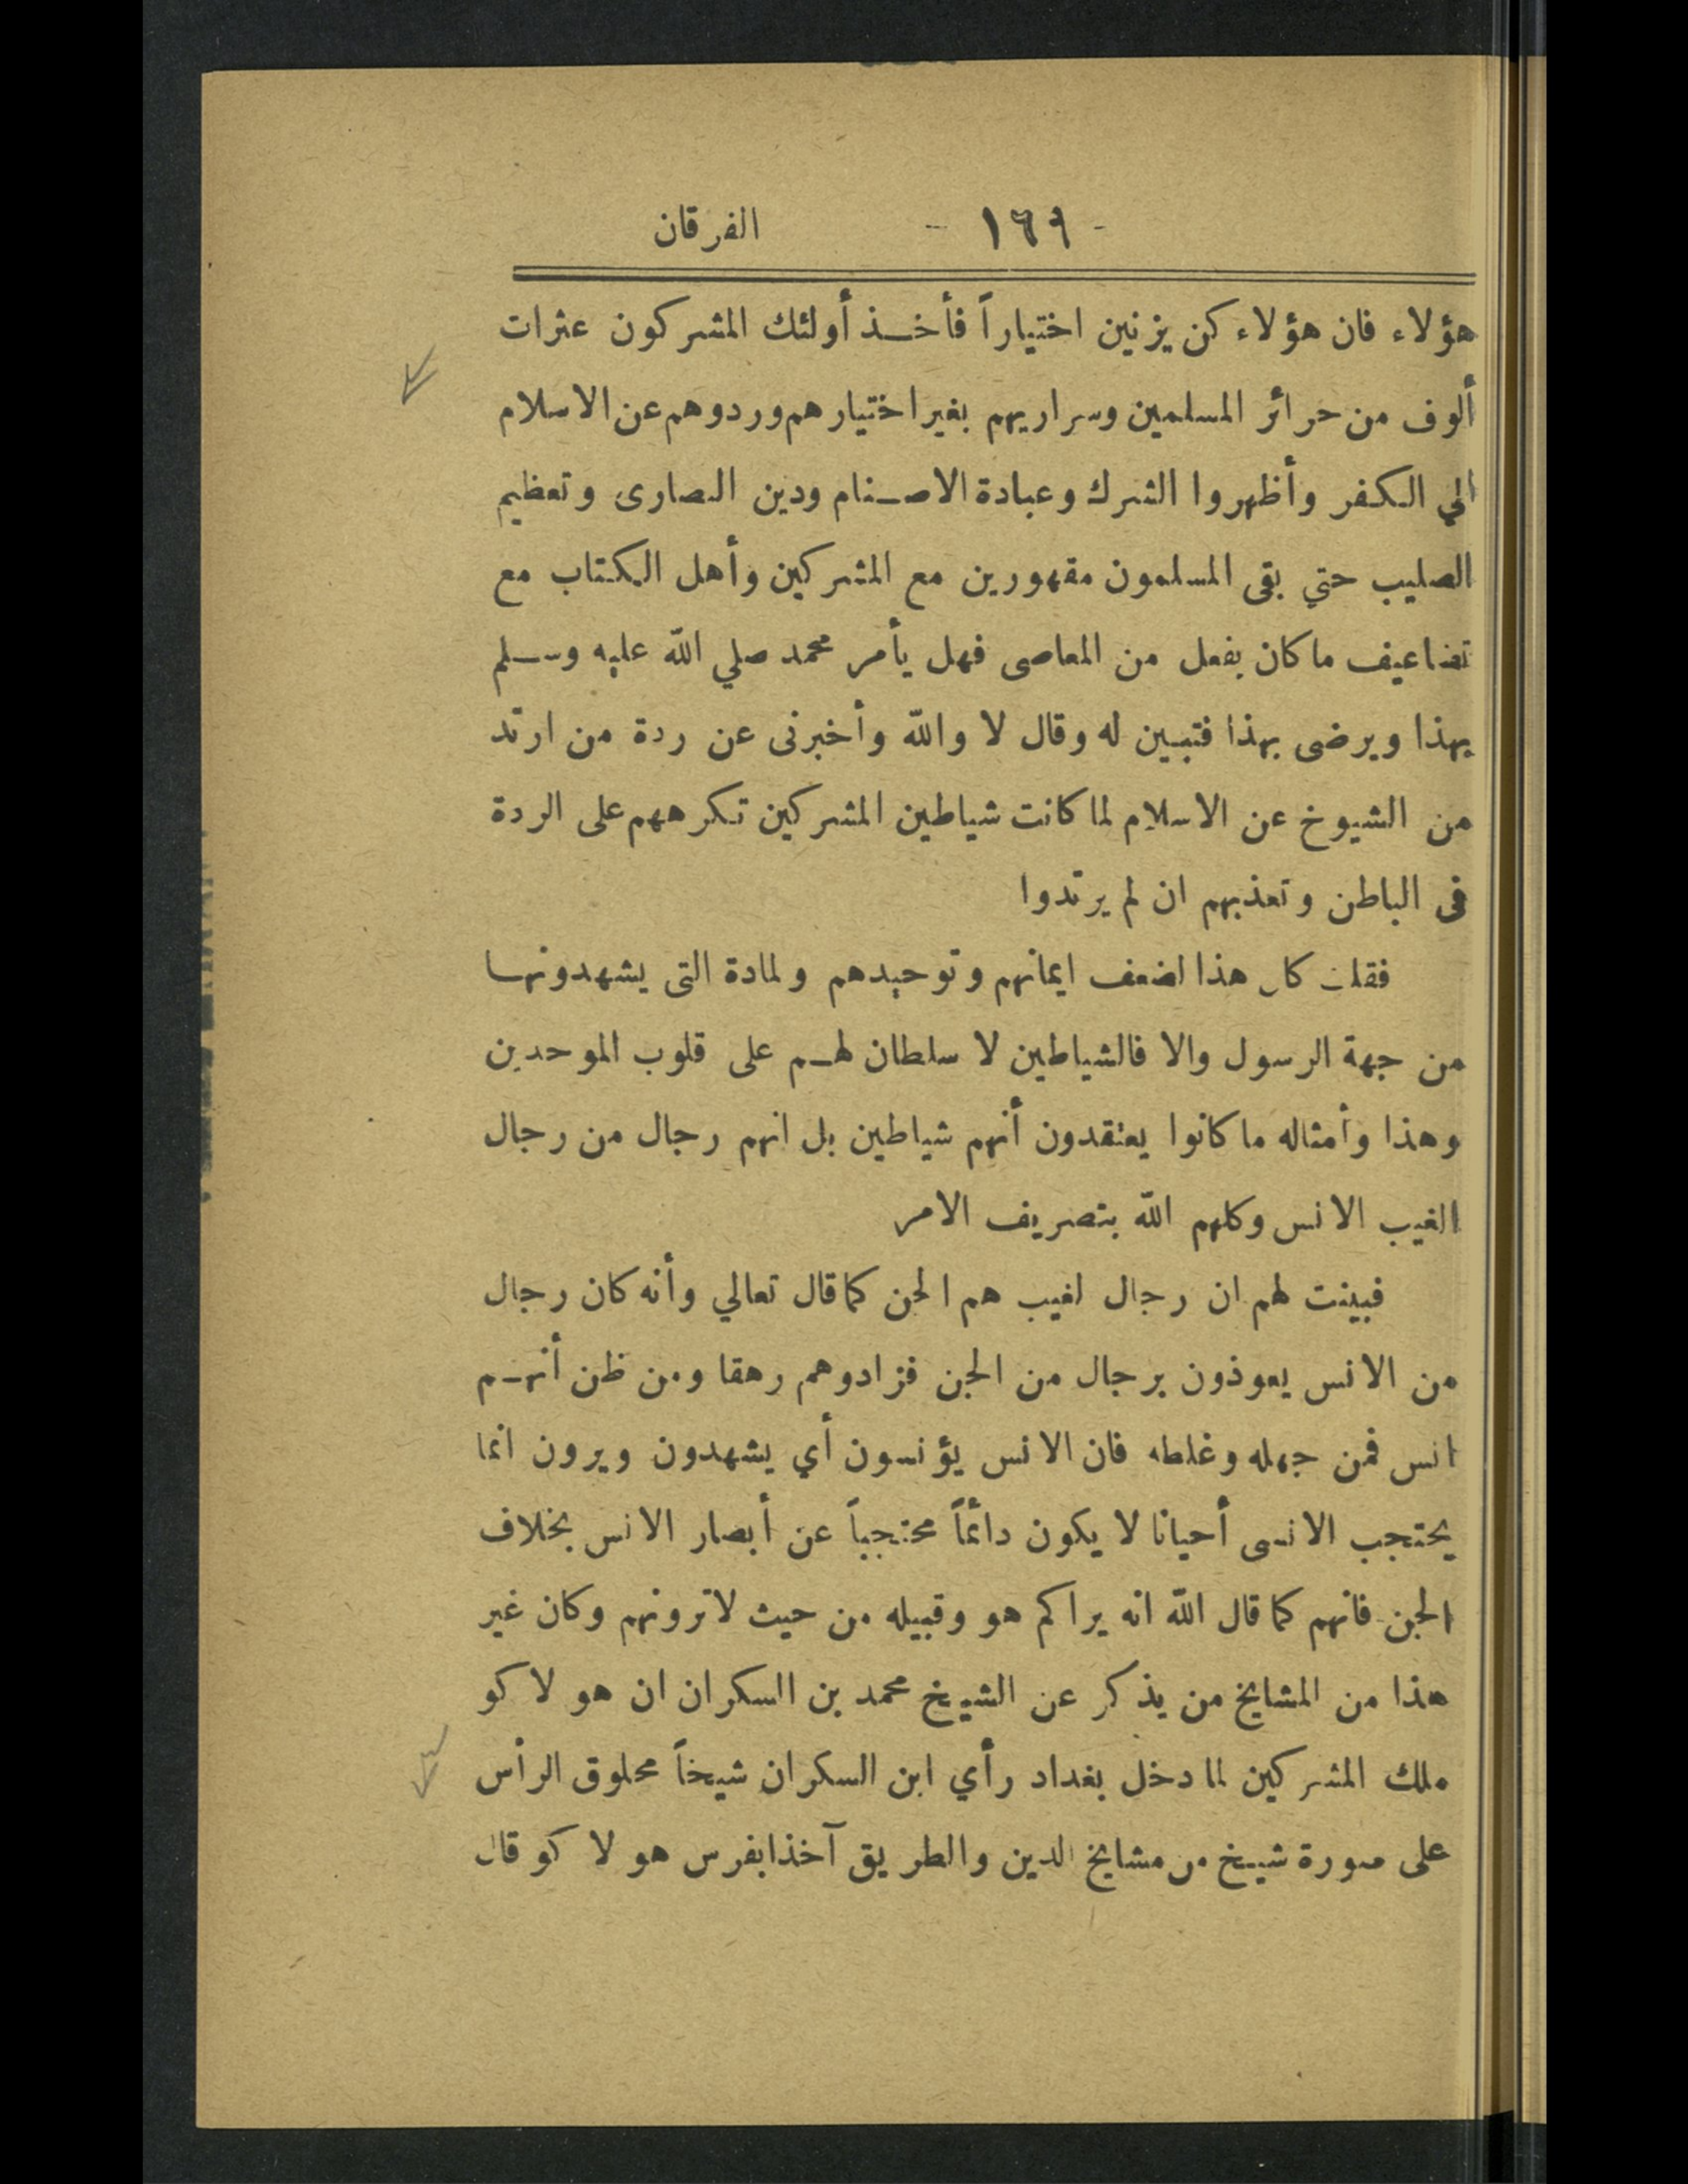 - ١٦٩ - الفرقان
هؤلاء فان هؤلاء كن يزنين اختياراً فأخذ أولئك المشركون عثرات
ألوف من حرائر المسلمين وسراريهم بغير اختيارهم وردوهم عن الاسلام
الي الكفر وأظهروا الشرك وعبادة الاصنام ودين النصارى وتعظيم
الصليب حتي بقى المسلمون مقهورين مع المشركين وأهل الكتاب مع
تضاعيف ما كان يفعل من المعاصى فهل يأمر محمد صلي الله عليه وسلم
بهذا ويرضى بهذا فتبين له وقال لا والله وأخبرنى عن ردة من ارتد
من الشيوخ عن الاسلام لما كانت شياطين المشركين تكرههم على الردة
فى الباطن وتعذبهم ان لم يرتدوا
فقلت كان هذا لضعف ايمانهم وتوحيدهم ولمادة التى يشهدونها
من جهة الرسول والا فالشياطين لا سلطان لهم على قلوب الموحدين
وهذا وأمثاله ما كانوا يعتقدون أنهم شياطين بل انهم رجال من رجال
الغيب الانس وكلهم الله بتصريف الامر
فبينت لهم ان رجال لغيب هم الجن كما قال تعالي وأنه كان رجال
من الانس يعوذون برجال من الجن فزادوهم رهقا ومن ظن أنهم
انس فمن جهله وغلطه فان الانس يؤنسون أي يشهدون ويرون انما
يحتجب الانسى أحيانا لا يكون دائماً محتجباً عن أبصار الانس بخلاف
الجن فانهم كما قال الله انه يراكم هو وقبيله من حيث لا ترونهم وكان غير
هذا من المشايخ من يذكر عن الشيخ محمد بن السكران ان هو لا كو
ملك المشركين لما دخل بغداد رأي ابن السكران شيخاً محلوق الرأس
على صورة شيخ من مشايخ الدين والطريق آخذا بفرس هو لا كو قال